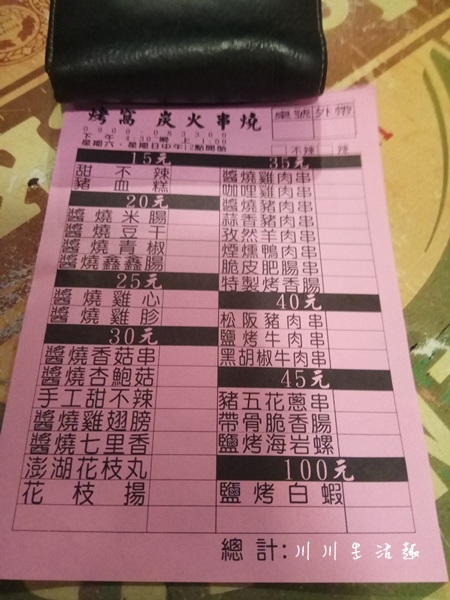 烤窩炭火串燒
桌號 外帶
不辣 辣
星期六、星期日中午12點開始
15元
甜不辣
豬血糕
20元
醬燒米腸
醬燒豆干
醬燒青椒
醬燒鑫鑫腸
25元
醬燒雞心
醬燒雞胗
30元
醬燒香菇串
醬燒杏鮑菇
手工甜不辣
醬燒雞翅膀
醬燒七里香
澎湖花枝丸
花枝揚
35元
醬燒雞肉串
咖哩雞肉串
醬燒豬肉串
蒜香豬肉串
孜然羊肉串
煙燻鴨肉串
脆皮肥腸串
特製烤香腸
40元
松阪豬肉串
鹽烤牛肉串
黑胡椒牛肉串
45元
豬五花蔥串
帶骨脆香腸
鹽烤海岩螺
100元
鹽烤白蝦
總計:
川川生活趣